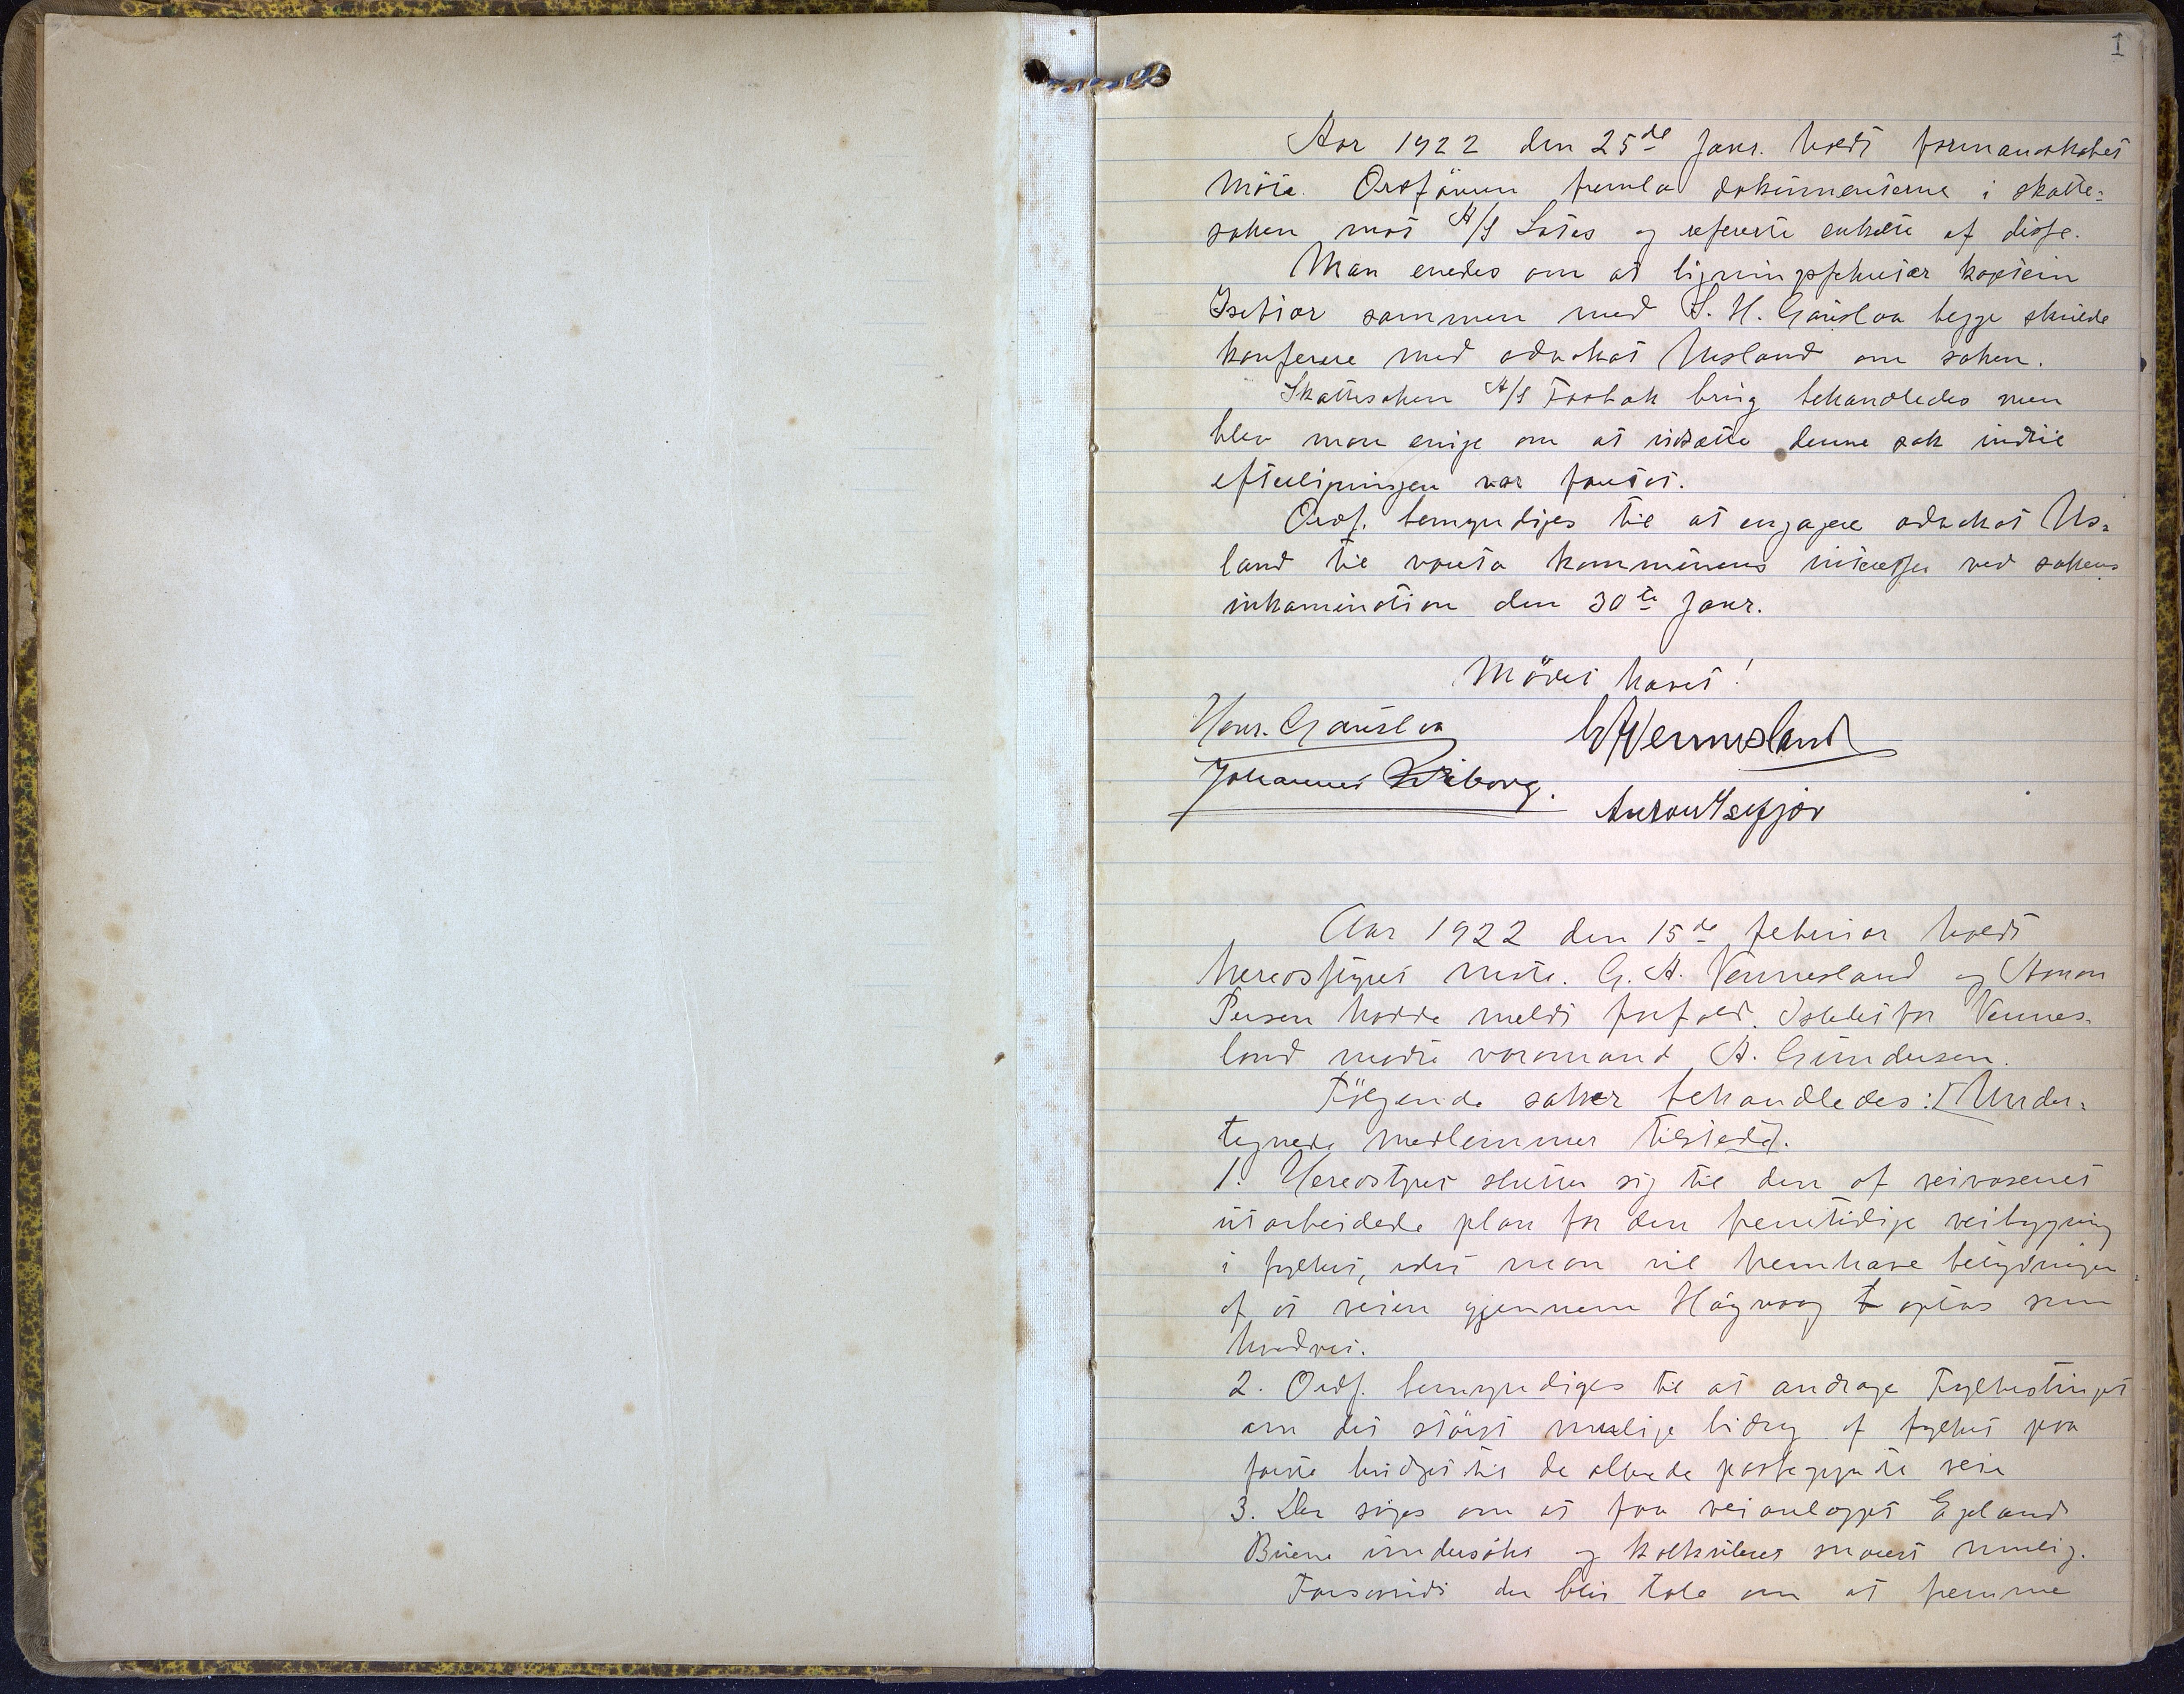 1
Aar 1922 den 25de Janr. holdt formandskabet
möte. Ordföreren fremla dokumenterne i skatte-
saken mot A/S Lotes og refererte enkelte af disse.
Man enedes om at ligningssekretær kaptein
Isefiær sammen med S. H. Gauslaa begge skulde
konferere med advokat Usland om saken.
Skattesaken A/S Fosbæk brug behandledes men
blev man enige om at utsætte denne sak indtil
efterligningen var foretat.
Ordf. bemyndiges til at engagere advokat Us-
land til vareta kommunens interesser ved sakens
inkamination den 30te Janr.
Mödet hævet!
Hans. Gauslaa G A Vennesland
Johannes Wiborg. Anton Isefjær
Aar 1922 den 15de februar holdt
herredsstyret möte. G. A. Vennesland og Aanon
Persen hadde meldt forfald. Istedet for Vennes-
land mötte varamand A. Gundersen.
Følgende saker behandledes: (Under-
tegnede medlemmer tilstede).
1. Heredstyret slutter sig til den af veivæsenet
utarbeidede plan for den fremtidige veibygning
i fylket, idet man vil fremhæve betydningen
af at veien gjennem Högvaag optas som
hovedvei.
2. Ordf. bemyndiges til at andrage Fylkestinget
om det störst mulige bidrag af fylket paa
förste budget til de allerede paabegynte veie
3. Der söges om at faa veianlægget Eplands
Buene undersökt og kalkuleret snarest mulig.
Forsaavidt der blir tale om at fremme